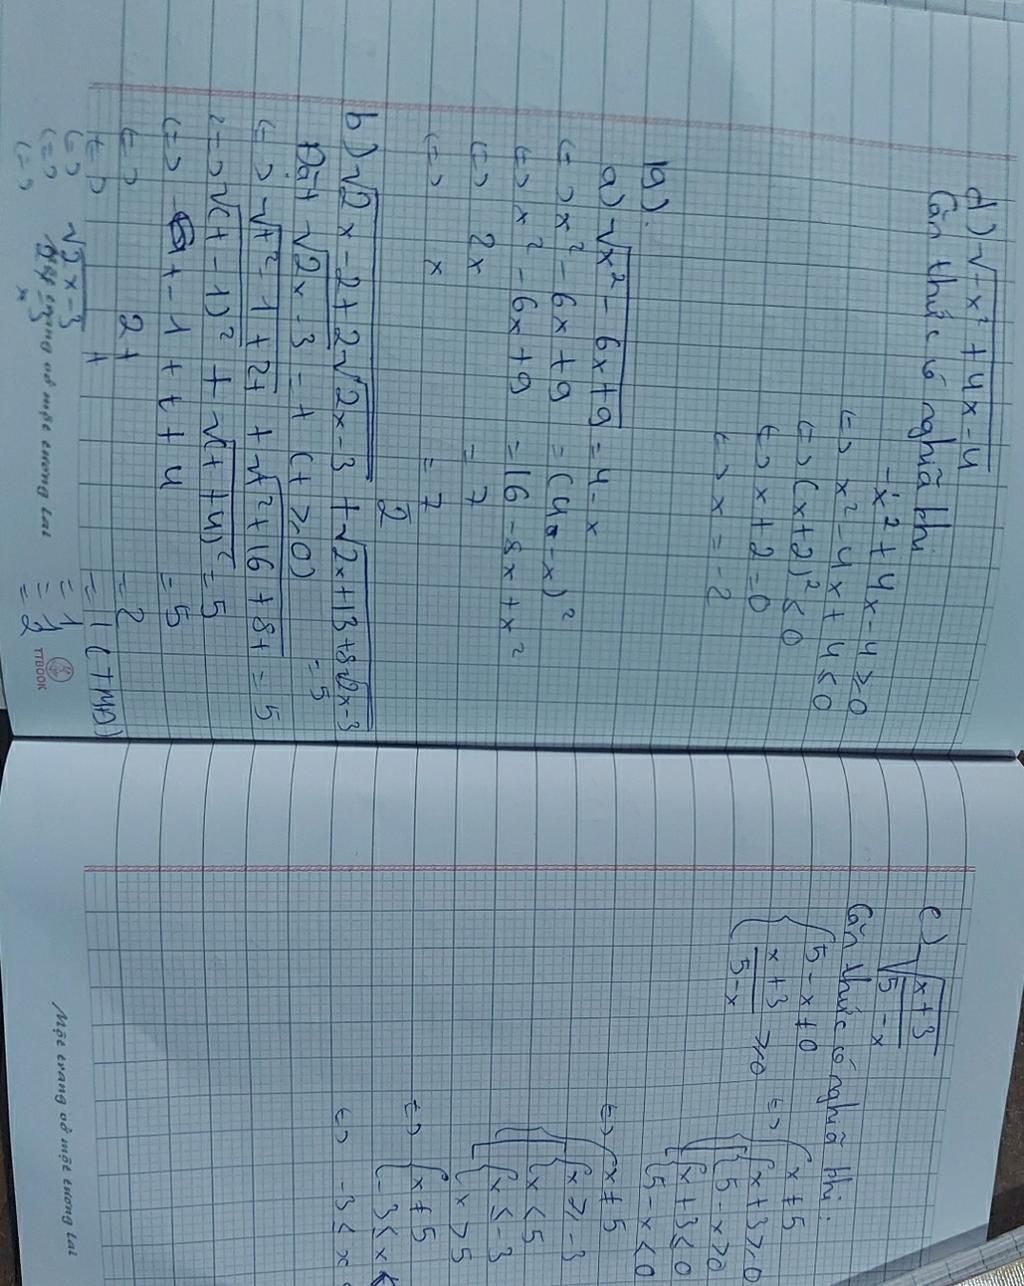 d) √-x² + 4x - 4
Căn thức có nghĩa khi
-x² + 4x - 4 ≥ 0
<=> x² - 4x + 4 ≤ 0
<=> (x+2)² ≤ 0
<=> x + 2 = 0
<=> x = -2
19)
a) √x² - 6x + 9 = 4 - x
<=> x² - 6x + 9 = (4 - x)²
<=> x² - 6x + 9 = 16 - 8x + x²
<=> 2x = 7
<=> x = 7/2
b) √2x - 2 + 2√2x - 3 + √2x + 13 + 8√2x - 3 = 5
Đặt √2x - 3 = t (t ≥ 0)
<=> √t² + 1 + 2t + √t² + 16 + 8t = 5
<=> √(t - 1)² + √(t + 4)² = 5
<=> t - 1 + t + 4 = 5
<=> 2t = 2
<=> t = 1 (TMĐ)
<=> √2x - 3 = 1
<=> = 1
<=> x = 2
Một trang vở một tương lai
TTBOOK
e) √x + 3 / 5 - x
Căn thức có nghĩa khi:
{ 5 - x ≠ 0
x + 3 / 5 - x ≥ 0
<=> { x ≠ 5
[ { x + 3 ≥ 0
5 - x > 0
{ x + 3 ≤ 0
5 - x < 0
<=> { x ≠ 5
[ { x ≥ -3
x < 5
{ x ≤ -3
x > 5
<=> { x ≠ 5
-3 ≤ x <
<=> -3 ≤ x
Một trang vở một tương lai